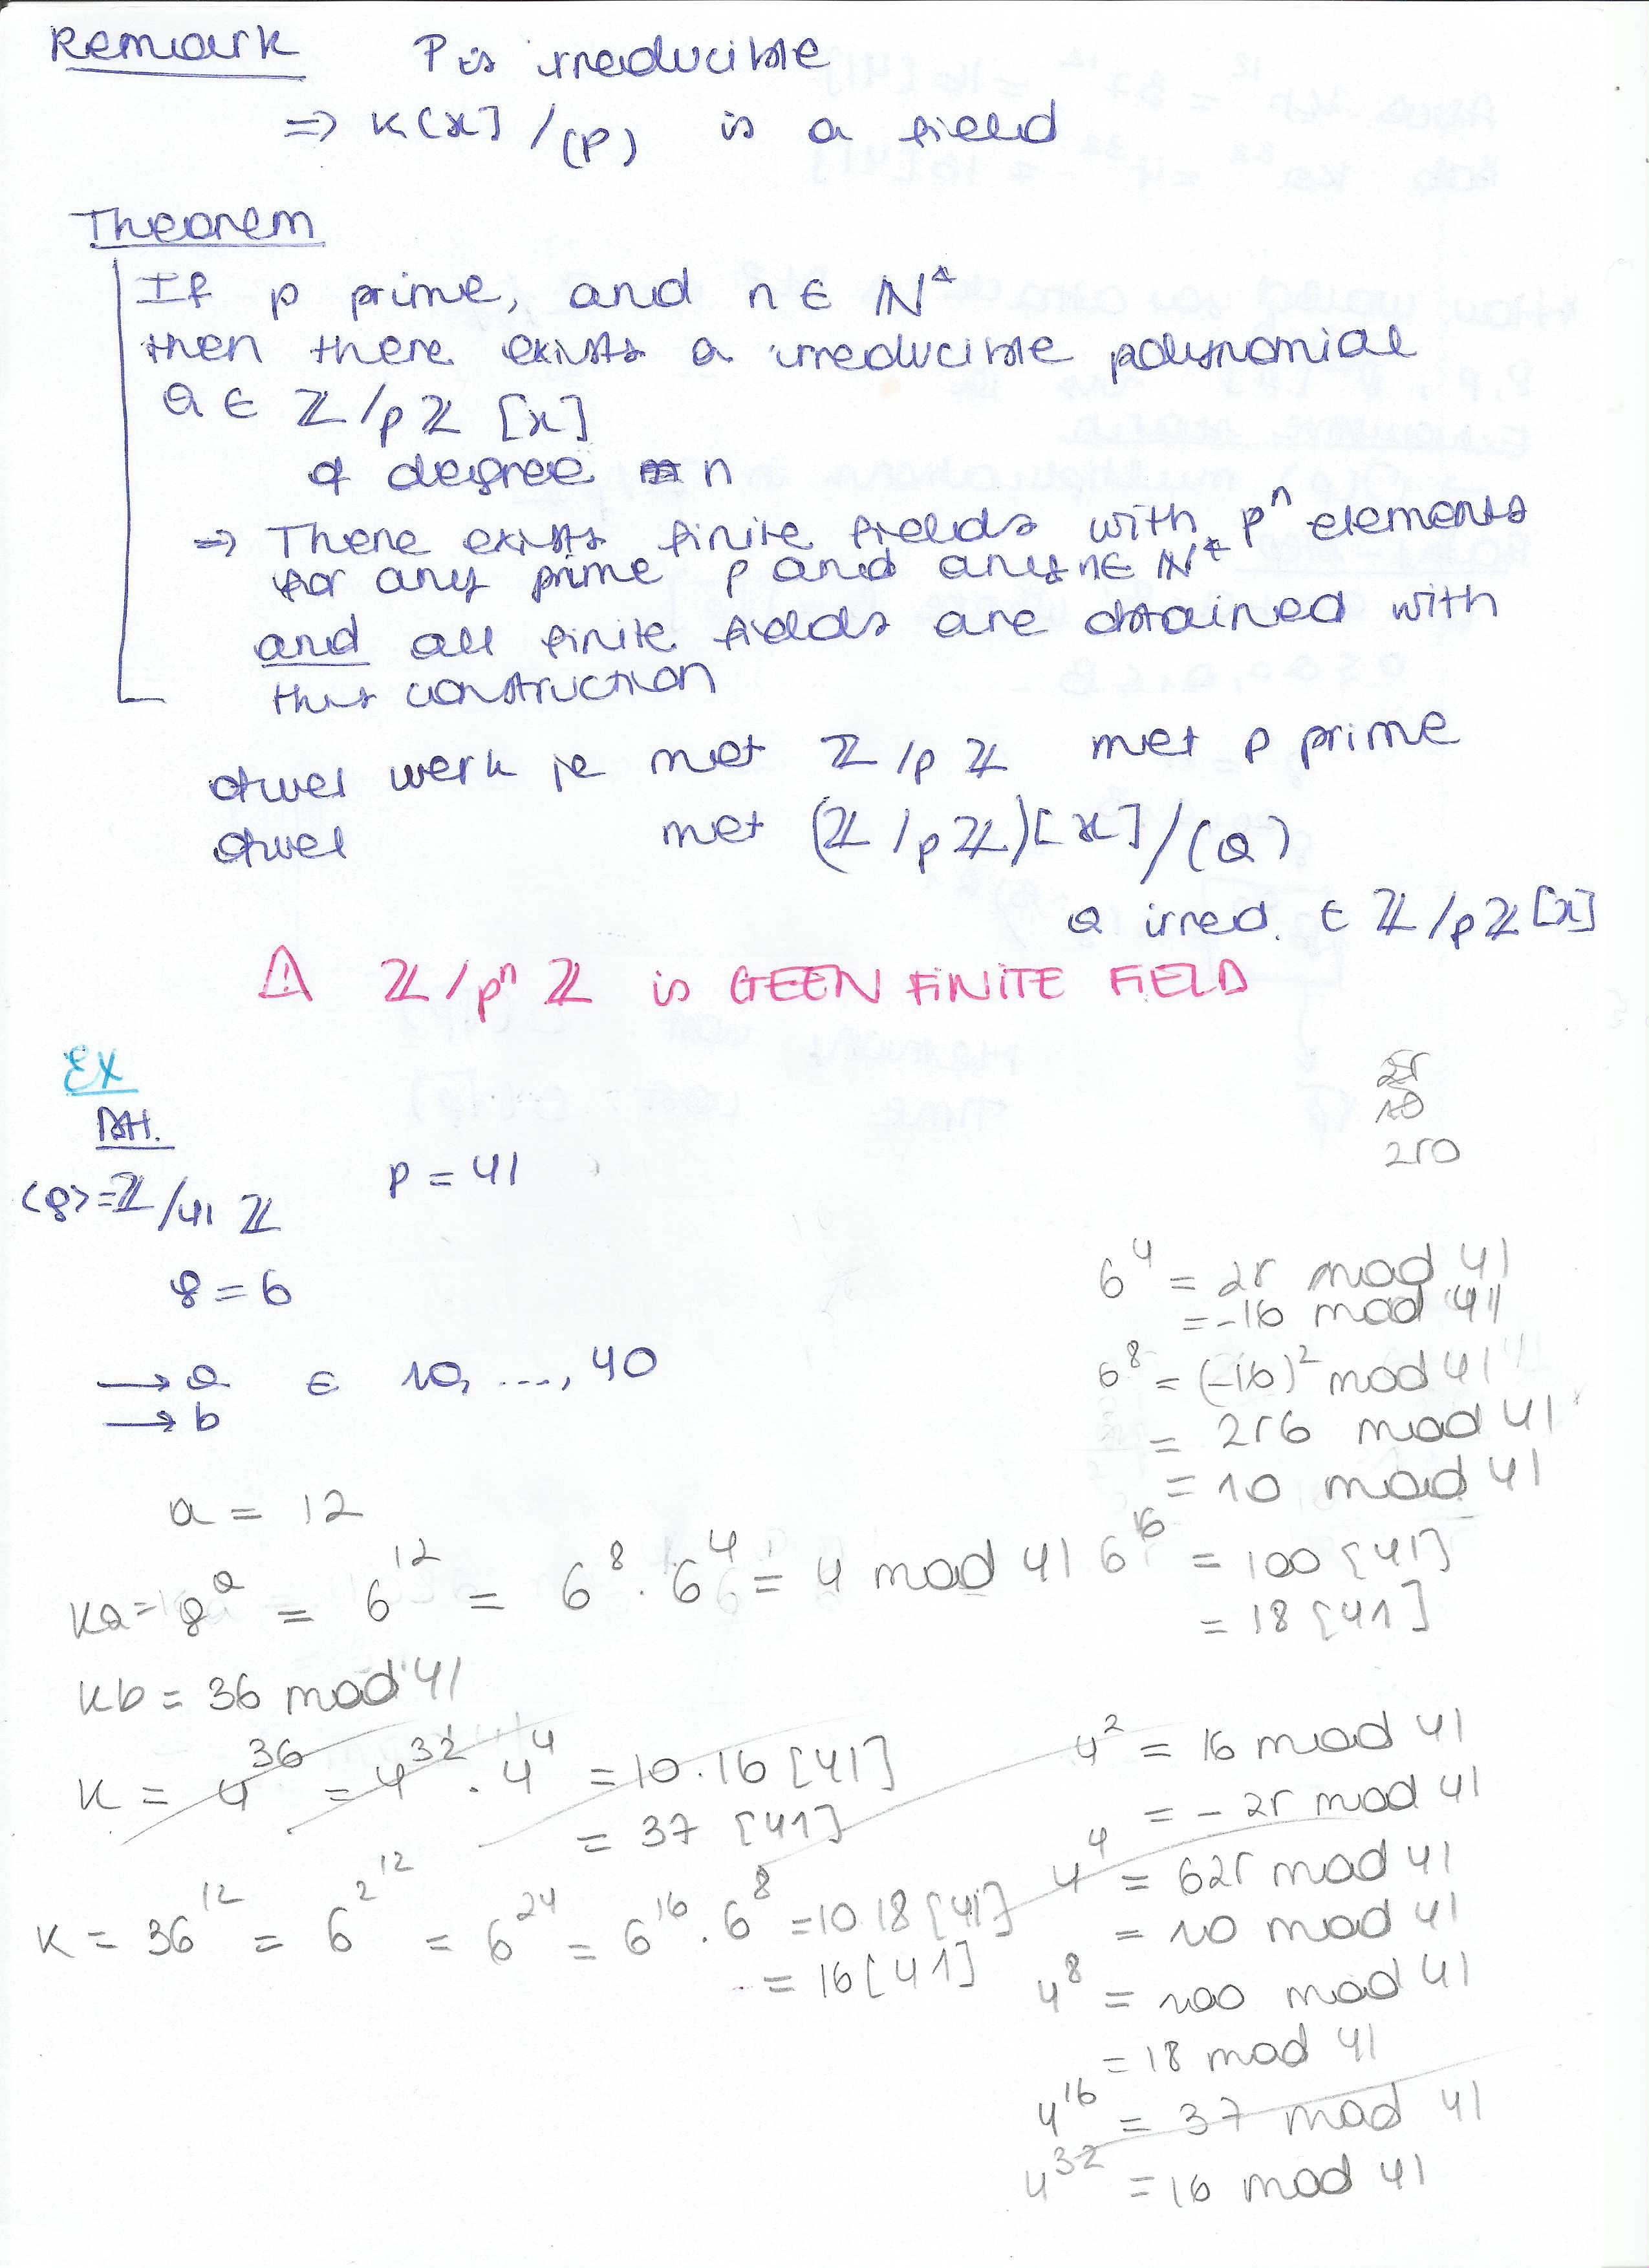 Remark P is irreducible
⇒ K[x]/(P) is a field
Theorem
If p prime, and n ∈ ℕ*
then there exists a irreducible polynomial
Q ∈ ℤ/pℤ [x]
of degree n
⇒ There exists finite fields with pⁿ elements
for any prime p and any n ∈ ℕ*
and all finite fields are obtained with
this construction
ofwel werk je met ℤ/pℤ met p prime
ofwel met (ℤ/pℤ)[x]/(Q)
Q irred. ∈ ℤ/pℤ[x]
⚠ ℤ/pⁿℤ is GEEN FINITE FIELD
EX
DH.
<g> = ℤ/41ℤ p = 41
g = 6
→ a ∈ 10, ..., 40
→ b
a = 12
Ka = gᵃ = 6¹² = 6⁸ · 6⁴ = 4 mod 41
Kb = 36 mod 41
K = 4³⁶ = 4³² · 4⁴ = 10 · 16 [41]
= 37 [41]
K = 36¹² = 6²^¹² = 6²⁴ = 6¹⁶ · 6⁸ = 10 18 [41]
= 16 [41]
25
10
250
6⁴ = 25 mod 41
= -16 mod 41
6⁸ = (-16)² mod 41
= 256 mod 41
= 10 mod 41
6¹⁶ = 100 [41]
= 18 [41]
4² = 16 mod 41
= -25 mod 41
4⁴ = 625 mod 41
= 10 mod 41
4⁸ = 100 mod 41
= 18 mod 41
4¹⁶ = 37 mod 41
4³² = 16 mod 41